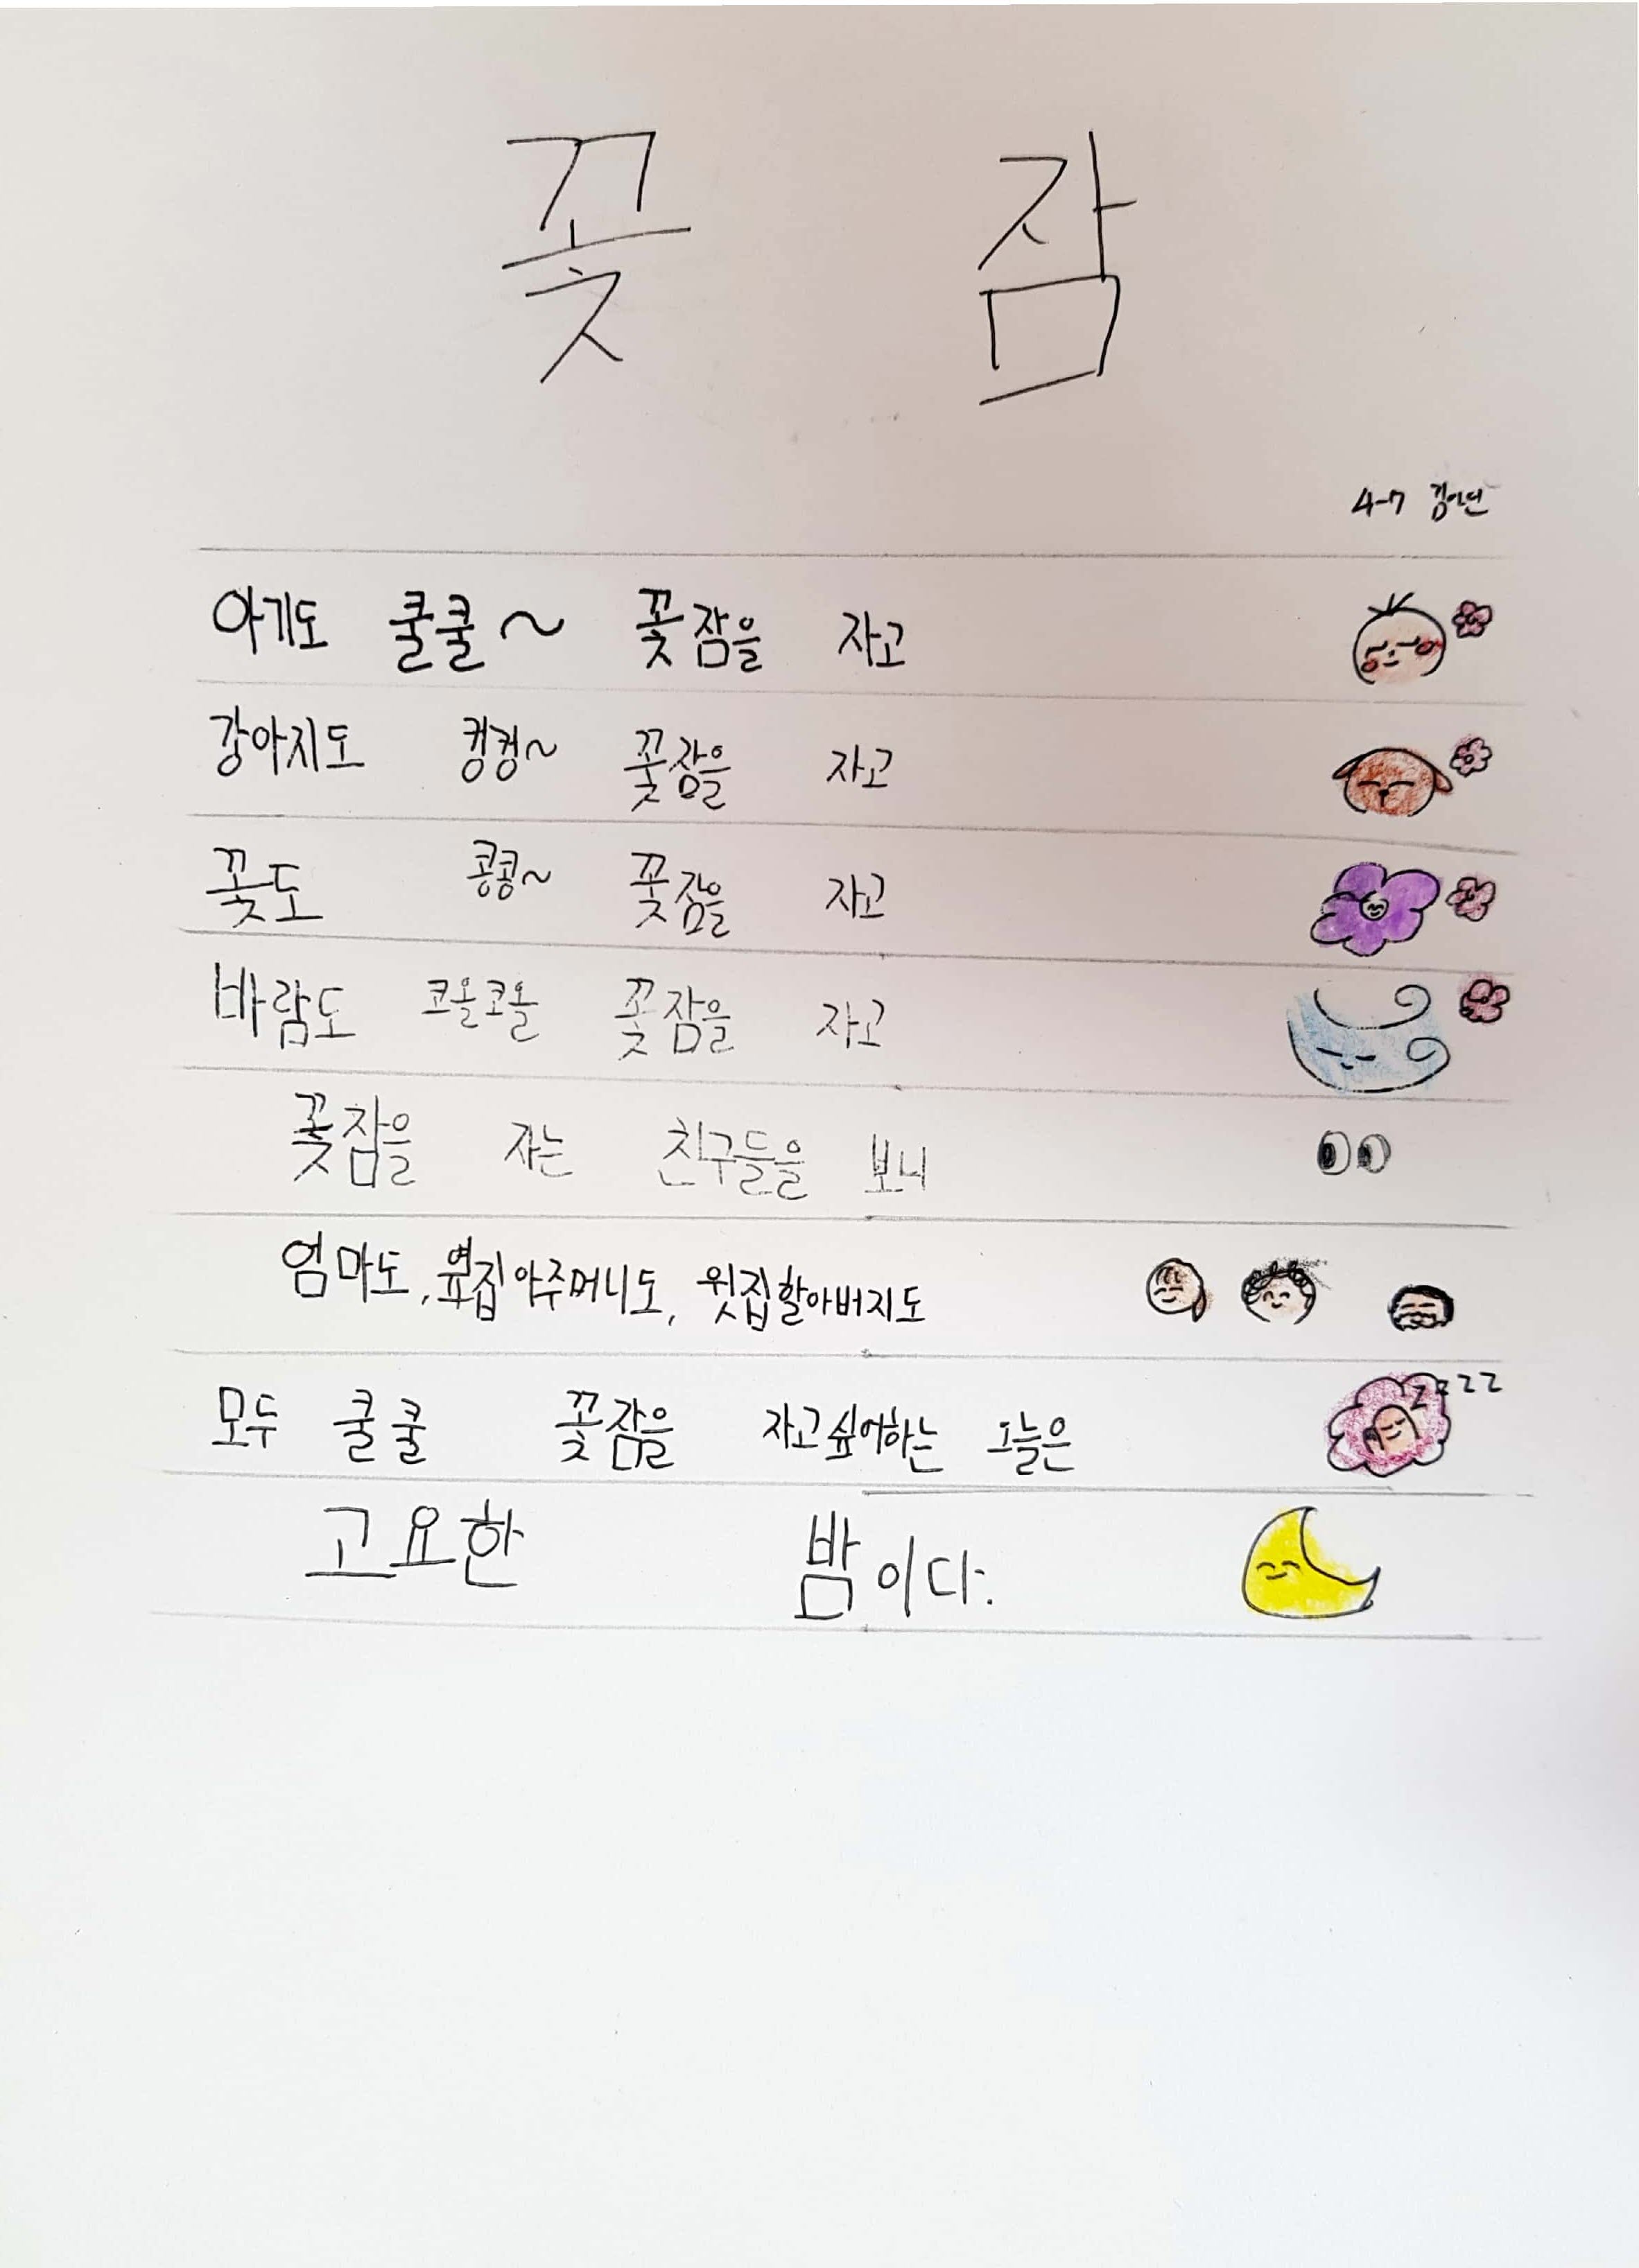 꽃잠
4-7
아기도 쿨쿨~ 꽃잠을 자고
강아지도 컹컹~ 꽃잠을 자고
꽃도 콩콩~ 꽃잠을 자고
바람도 코올코올 꽃잠을 자고
꽃잠을 자는 친구들을 보니
엄마도, 옆집아주머니도, 윗집할아버지도
모두 쿨쿨 꽃잠을 자고싶어하는 오늘은
zzzz
고요한 밤이다.